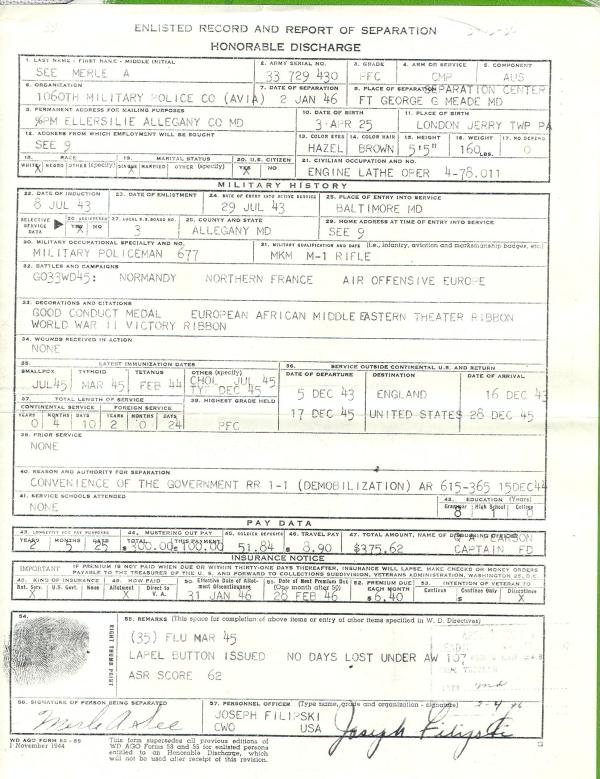 ENLISTED RECORD AND REPORT OF SEPARATION
HONORABLE DISCHARGE
1. LAST NAME - FIRST NAME - MIDDLE INITIAL 2. ARMY SERIAL NO. 3. GRADE 4. ARM OR SERVICE 5. COMPONENT
SEE MERLE A 33 729 430 PFC CMP AUS
6. ORGANIZATION 7. DATE OF SEPARATION 8. PLACE OF SEPARATION SEPARATION CENTER
1060TH MILITARY POLICE CO (AVIA) 2 JAN 46 FT GEORGE G MEADE MD
9. PERMANENT ADDRESS FOR MAILING PURPOSES 10. DATE OF BIRTH 11. PLACE OF BIRTH
%PM ELLERSILIE ALLEGANY CO MD 3 APR 25 LONDON JERRY TWP PA
12. ADDRESS FROM WHICH EMPLOYMENT WILL BE SOUGHT 13. COLOR EYES 14. COLOR HAIR 15. HEIGHT 16. WEIGHT 17. NO. DEPEND.
SEE 9 HAZEL BROWN 5'5" 160 LBS. 0
18. RACE 19. MARITAL STATUS 20. U.S. CITIZEN 21. CIVILIAN OCCUPATION AND NO.
WHITE NEGRO OTHER (specify) SINGLE MARRIED OTHER (specify) YES NO ENGINE LATHE OPER 4-78.011
X X X
MILITARY HISTORY
22. DATE OF INDUCTION 23. DATE OF ENLISTMENT 24. DATE OF ENTRY INTO ACTIVE SERVICE 25. PLACE OF ENTRY INTO SERVICE
8 JUL 43 29 JUL 43 BALTIMORE MD
SELECTIVE SERVICE DATA 26. REGISTERED YES NO 27. LOCAL S.S. BOARD NO. 28. COUNTY AND STATE 29. HOME ADDRESS AT TIME OF ENTRY INTO SERVICE
X 3 ALLEGANY MD SEE 9
30. MILITARY OCCUPATIONAL SPECIALTY AND NO. 31. MILITARY QUALIFICATION AND DATE (i.e., infantry, aviation and marksmanship badges, etc.)
MILITARY POLICEMAN 677 MKM M-1 RIFLE
32. BATTLES AND CAMPAIGNS
GO33WD45: NORMANDY NORTHERN FRANCE AIR OFFENSIVE EUROPE
33. DECORATIONS AND CITATIONS
GOOD CONDUCT MEDAL EUROPEAN AFRICAN MIDDLE EASTERN THEATER RIBBON
WORLD WAR II VICTORY RIBBON
34. WOUNDS RECEIVED IN ACTION
NONE
35. LATEST IMMUNIZATION DATES 36. SERVICE OUTSIDE CONTINENTAL U.S. AND RETURN
SMALLPOX TYPHOID TETANUS OTHER (specify) DATE OF DEPARTURE DESTINATION DATE OF ARRIVAL
CHOL JUL 45
JUL45 MAR 45 FEB 44 TY DEC 45 5 DEC 43 ENGLAND 16 DEC 43
37. TOTAL LENGTH OF SERVICE 38. HIGHEST GRADE HELD
CONTINENTAL SERVICE FOREIGN SERVICE 17 DEC 45 UNITED STATES 28 DEC 45
YEARS MONTHS DAYS YEARS MONTHS DAYS
0 4 10 2 0 24 PFC
39. PRIOR SERVICE
NONE
40. REASON AND AUTHORITY FOR SEPARATION
CONVENIENCE OF THE GOVERNMENT RR 1-1 (DEMOBILIZATION) AR 615-365 15DEC44
41. SERVICE SCHOOLS ATTENDED 42. EDUCATION (Years)
NONE Grammar High School College
8
PAY DATA
43. LONGEVITY FOR PAY PURPOSES 44. MUSTERING OUT PAY 45. SOLDIER DEPOSITS 46. TRAVEL PAY 47. TOTAL AMOUNT, NAME OF DISBURSING OFFICER
YEARS MONTHS DAYS TOTAL THIS PAYMENT
2 5 25 $300.00 $100.00 51.84 $8.90 $375.62 CARSON
CAPTAIN FD
INSURANCE NOTICE
IMPORTANT IF PREMIUM IS NOT PAID WHEN DUE OR WITHIN THIRTY-ONE DAYS THEREAFTER, INSURANCE WILL LAPSE. MAKE CHECKS OR MONEY ORDERS
PAYABLE TO THE TREASURER OF THE U. S. AND FORWARD TO COLLECTIONS SUBDIVISION, VETERANS ADMINISTRATION, WASHINGTON 25, D. C.
48. KIND OF INSURANCE 49. HOW PAID 50. Effective Date of Allotment Discontinuance 51. Date of Next Premium Due (One month after 50) 52. PREMIUM DUE EACH MONTH 53. INTENTION OF VETERAN TO
Nat. Serv. U.S. Govt. None Allotment Direct to V. A. Continue Continue Only Discontinue
X X 31 JAN 46 28 FEB 46 $6.40 X
54. 55. REMARKS (This space for completion of above items or entry of other items specified in W. D. Directives)
RIGHT THUMB PRINT
(35) FLU MAR 45
LAPEL BUTTON ISSUED NO DAYS LOST UNDER AW 107
ASR SCORE 62
56. SIGNATURE OF PERSON BEING SEPARATED 57. PERSONNEL OFFICER (Type name, grade and organization - signature)
Merle A See JOSEPH FILIPSKI
CWO USA Joseph Filipski
WD AGO FORM 53 - 55
1 November 1944
This form supersedes all previous editions of
WD AGO Forms 53 and 55 for enlisted persons
entitled to an Honorable Discharge, which
will not be used after receipt of this revision.